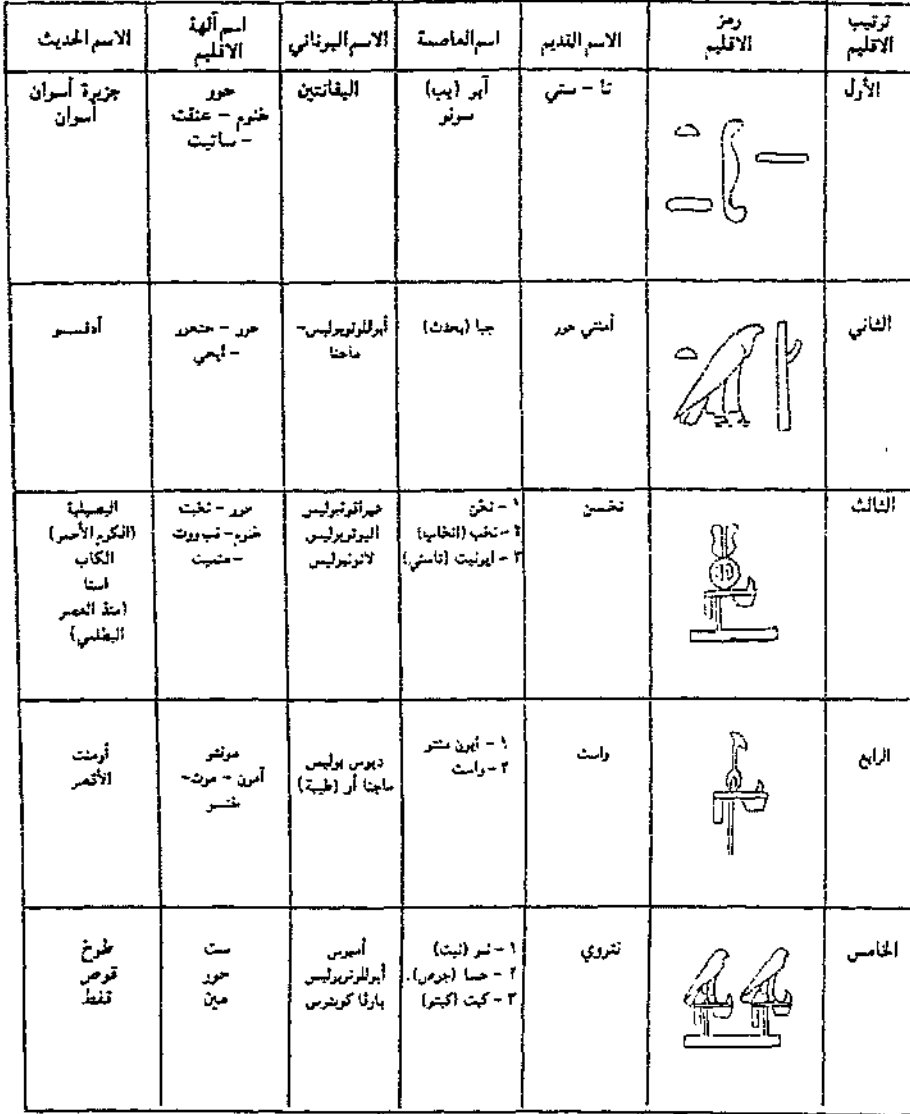 ترتيب الاقليم
رمز الاقليم
الاسم القديم
اسم العاصمة
الاسم اليوناني
اسم آلهة الاقليم
الاسم الحديث
الأول
تا - ستي
آبو (يب)
سونو
اليفانتين
حور
خنوم - عنقت
- ساتيت
جزيرة أسوان
أسوان
الثاني
أمنتي حور
جبا (بحدت)
أبوللونوبوليس-
ماجنا
حور - حتحور
- أيحي
أدفـــو
الثالث
نخـن
١ - نخن
٢ - نخب (انخاب)
٣ - ايونيت (تاسني)
هيراقونبوليس
اليوثوبوليس
لاتونبوليس
حور - نخبت
خنوم - نب ووت
- منحيت
البصيلية
(الكوم الأحمر)
الكاب
اسنا
(منذ العصر
البطلمي)
الرابع
واست
١ - أيون منتو
٢ - واست
ديوس بوليس
ماجنا أو (طيبة)
مونتو
آمون - موت-
خنـــو
أرمنت
الأقصر
الخامس
نتروي
١ - نبو (نبت)
٢ - جسا (جوص).
٣ - كبت (كبتو)
أمبوس
أبوللونوبوليس
بارفا كوبتوس
ست
حور
مين
طوخ
قوص
قفط